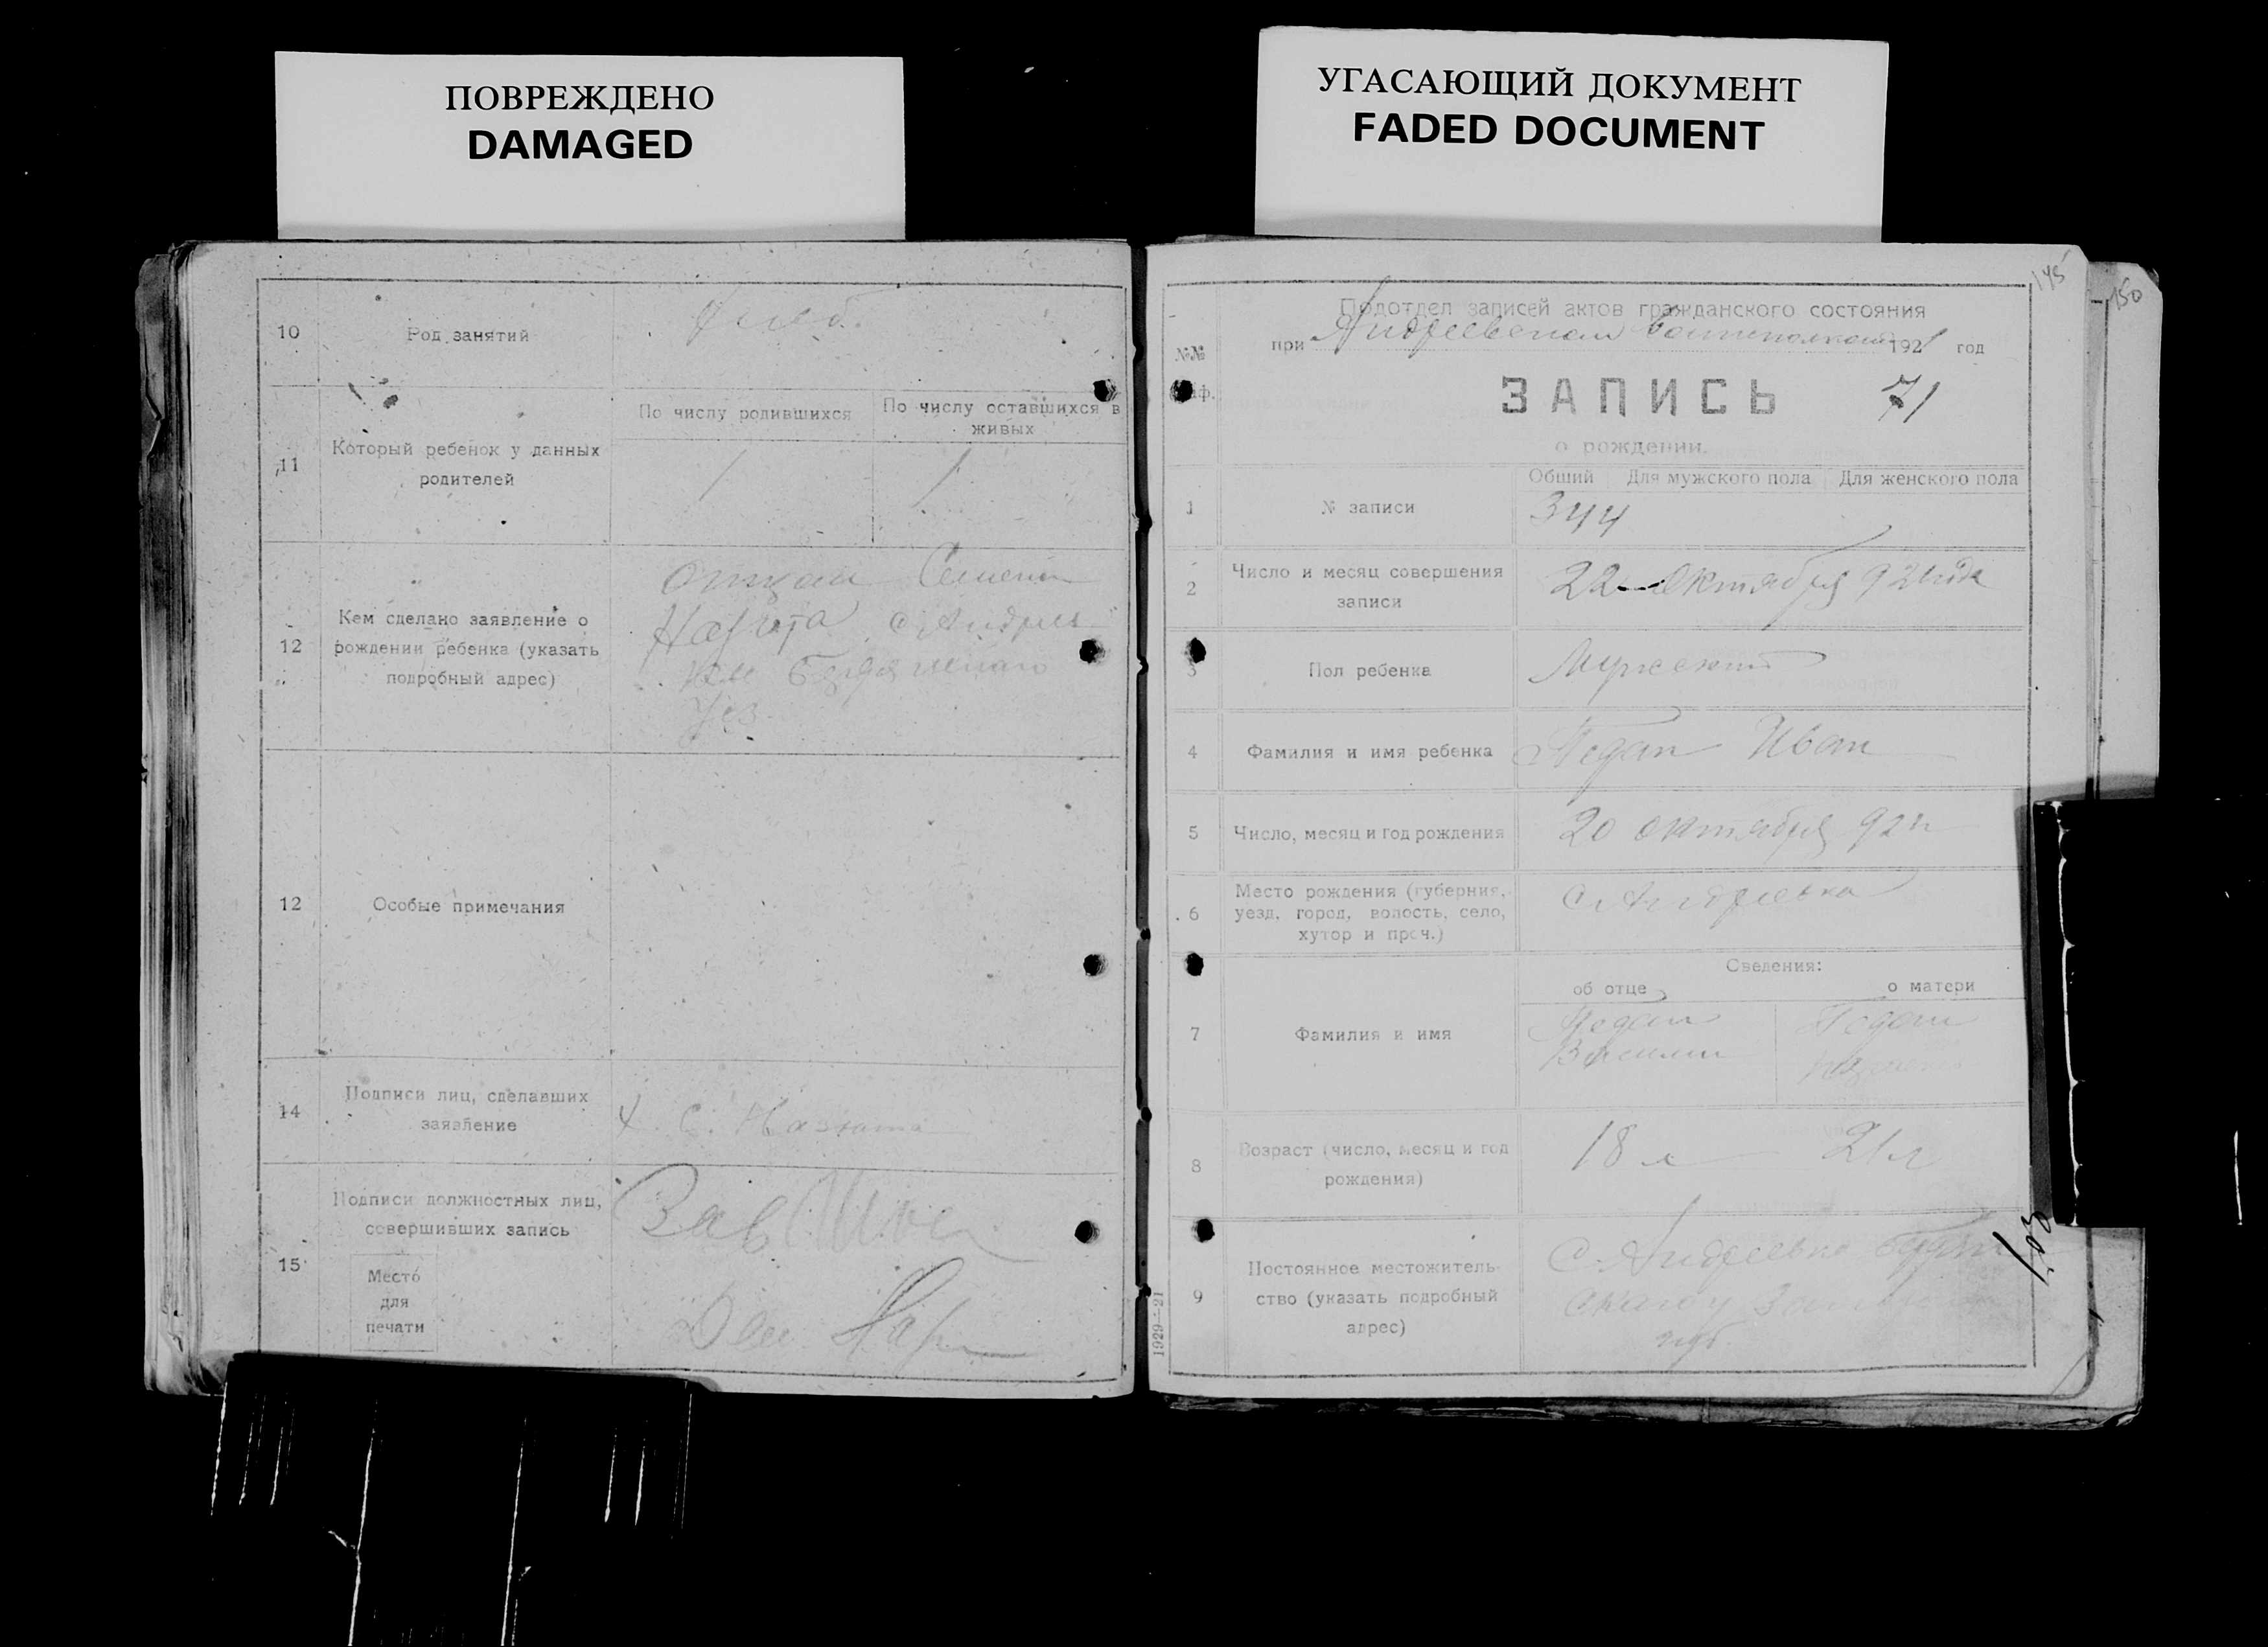 ПОВРЕЖДЕНО
DAMAGED
УГАСАЮЩИЙ ДОКУМЕНТ
FADED DOCUMENT
10
Род занятий
Хлеб.
11
Который ребенок у данных
родителей
По числу родившихся
По числу оставшихся в
живых
1
1
12
Кем сделано заявление о
рождении ребенка (указать
подробный адрес)
отцом Семеном
с. Андрее
Уез
12
Особые примечания
14
Подписи лиц, сделавших
заявление
С.
15
Подписи должностных лиц,
совершивших запись
Место
для
печати
Зав
Дел
145
150
Подотдел записей актов гражданского состояния
№№
при Андреевском 1921 год
ЗАПИСЬ 71
о рождении.
Общий Для мужского пола Для женского пола
1
№ записи
344
2
Число и месяц совершения
записи
22 Октября 921 года
3
Пол ребенка
Мужской
4
Фамилия и имя ребенка
Педан Иван
5
Число, месяц и год рождения
20 октября 921
6
Место рождения (губерния,
уезд, город, волость, село,
хутор и проч.)
с. Андреевка
Сведения:
об отце
о матери
7
Фамилия и имя
Педан
Василий
Педан
8
Возраст (число, месяц и год
рождения)
18 л
21 л
9
Постоянное местожитель-
ство (указать подробный
адрес)
С. Андреевка
губ.
103
1929—21